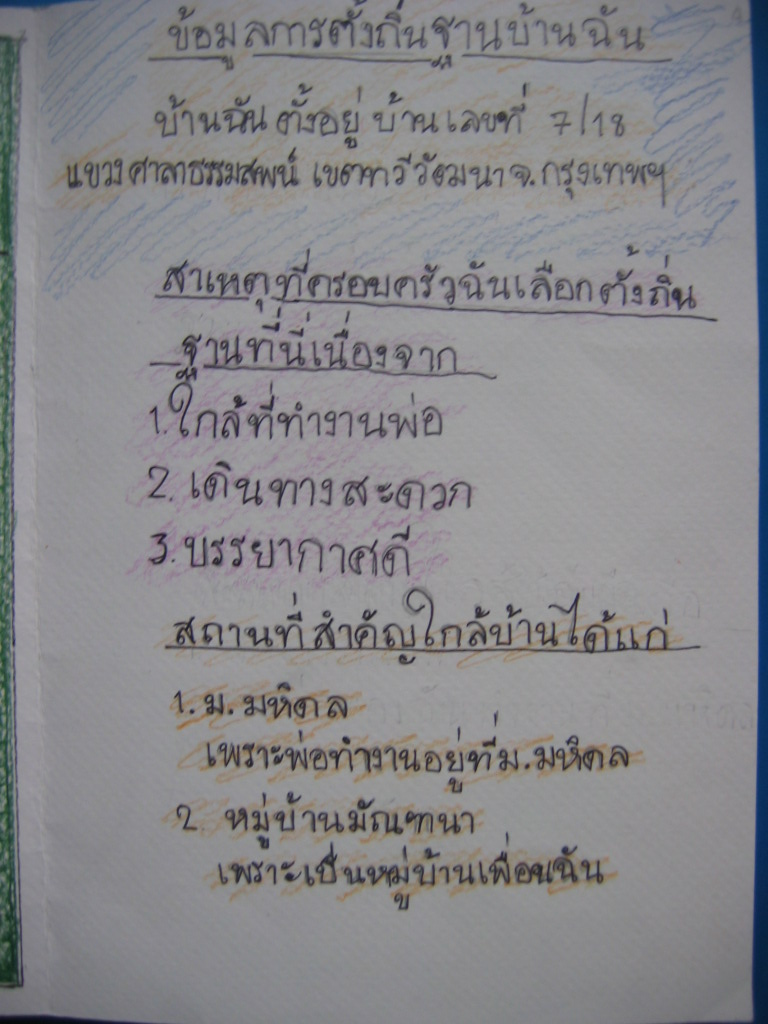 ข้อมูลการตั้งถิ่นฐานบ้านฉัน
บ้านฉัน ตั้งอยู่ บ้านเลขที่ 7/18
แขวงศาลาธรรมสพน์ เขตทวีวัฒนา จ.กรุงเทพฯ
สาเหตุที่ครอบครัวฉันเลือกตั้งถิ่น
ฐานที่นี่เนื่องจาก
1.ใกล้ที่ทำงานพ่อ
2. เดินทางสะดวก
3.บรรยากาศดี
สถานที่สำคัญใกล้บ้านได้แก่
1. ม. มหิดล
เพราะพ่อทำงานอยู่ที่ม.มหิดล
2 หมู่บ้านมัณฑนา
เพราะเป็นหมู่บ้านเพื่อนฉัน